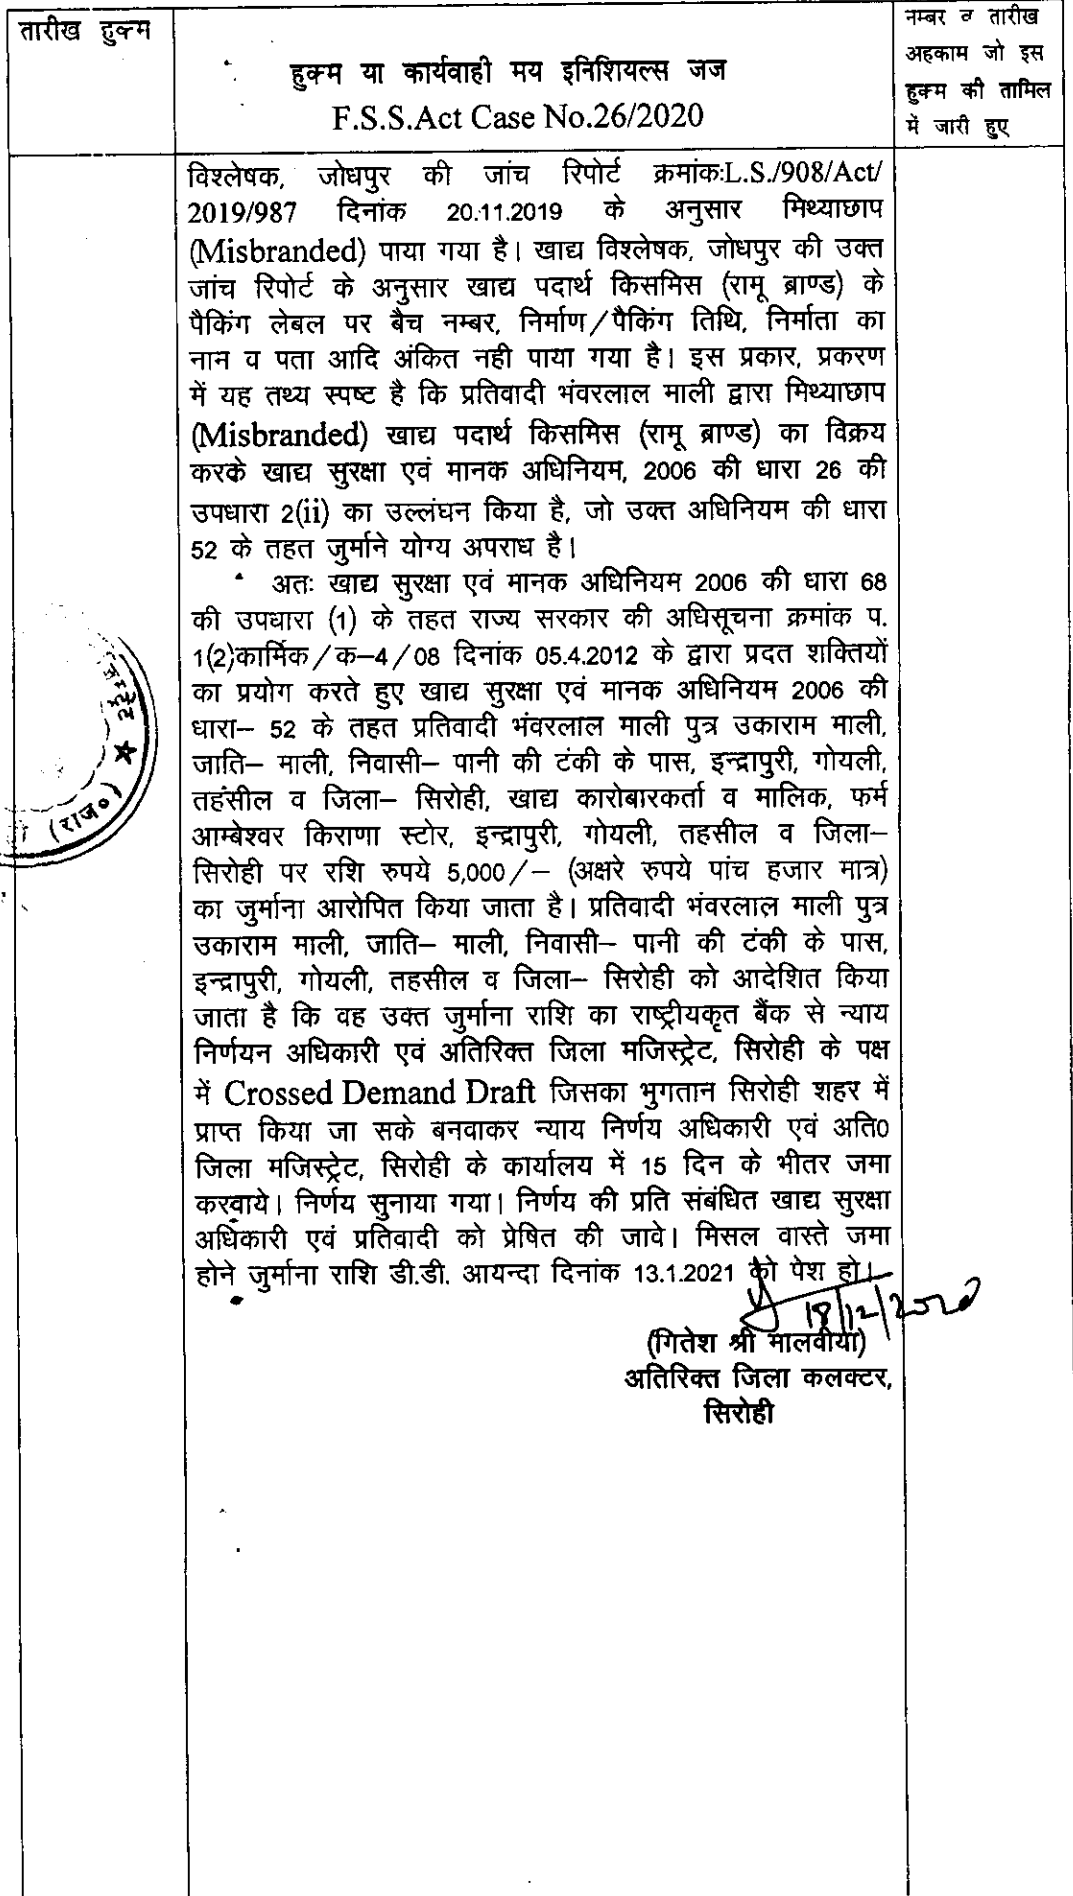 तारीख हुक्म
हुक्म या कार्यवाही मय इनिशियल्स जज
F.S.S.Act Case No.26/2020
नम्बर व तारीख
अहकाम जो इस
हुक्म की तामिल
में जारी हुए
विश्लेषक, जोधपुर की जांच रिपोर्ट क्रमांकः L.S./908/Act/
2019/987 दिनांक 20.11.2019 के अनुसार मिथ्याछाप
(Misbranded) पाया गया है। खाद्य विश्लेषक, जोधपुर की उक्त
जांच रिपोर्ट के अनुसार खाद्य पदार्थ किसमिस (रामू ब्राण्ड) के
पैकिंग लेबल पर बैच नम्बर, निर्माण/पैकिंग तिथि, निर्माता का
नान व पता आदि अंकित नही पाया गया है। इस प्रकार, प्रकरण
में यह तथ्य स्पष्ट है कि प्रतिवादी भंवरलाल माली द्वारा मिथ्याछाप
(Misbranded) खाद्य पदार्थ किसमिस (रामू ब्राण्ड) का विक्रय
करके खाद्य सुरक्षा एवं मानक अधिनियम, 2006 की धारा 26 की
उपधारा 2(ii) का उल्लंघन किया है, जो उक्त अधिनियम की धारा
52 के तहत जुर्माने योग्य अपराध है।
अतः खाद्य सुरक्षा एवं मानक अधिनियम 2006 की धारा 68
की उपधारा (1) के तहत राज्य सरकार की अधिसूचना क्रमांक प.
1(2)कार्मिक/क–4/08 दिनांक 05.4.2012 के द्वारा प्रदत शक्तियों
का प्रयोग करते हुए खाद्य सुरक्षा एवं मानक अधिनियम 2006 की
धारा– 52 के तहत प्रतिवादी भंवरलाल माली पुत्र उकाराम माली,
जाति– माली, निवासी– पानी की टंकी के पास, इन्द्रापुरी, गोयली,
तहसील व जिला– सिरोही, खाद्य कारोबारकर्ता व मालिक, फर्म
आम्बेश्वर किराणा स्टोर, इन्द्रापुरी, गोयली, तहसील व जिला–
सिरोही पर रशि रुपये 5,000/– (अक्षरे रुपये पांच हजार मात्र)
का जुर्माना आरोपित किया जाता है। प्रतिवादी भंवरलाल माली पुत्र
उकाराम माली, जाति– माली, निवासी– पानी की टंकी के पास,
इन्द्रापुरी, गोयली, तहसील व जिला– सिरोही को आदेशित किया
जाता है कि वह उक्त जुर्माना राशि का राष्ट्रीयकृत बैंक से न्याय
निर्णयन अधिकारी एवं अतिरिक्त जिला मजिस्ट्रेट, सिरोही के पक्ष
में Crossed Demand Draft जिसका भुगतान सिरोही शहर में
प्राप्त किया जा सके बनवाकर न्याय निर्णय अधिकारी एवं अति0
जिला मजिस्ट्रेट, सिरोही के कार्यालय में 15 दिन के भीतर जमा
करवाये। निर्णय सुनाया गया। निर्णय की प्रति संबंधित खाद्य सुरक्षा
अधिकारी एवं प्रतिवादी को प्रेषित की जावे। मिसल वास्ते जमा
होने जुर्माना राशि डी.डी. आयन्दा दिनांक 13.1.2021 को पेश हो।
18/12/2020
(गितेश श्री मालवीया)
अतिरिक्त जिला कलक्टर,
सिरोही
(राज०)